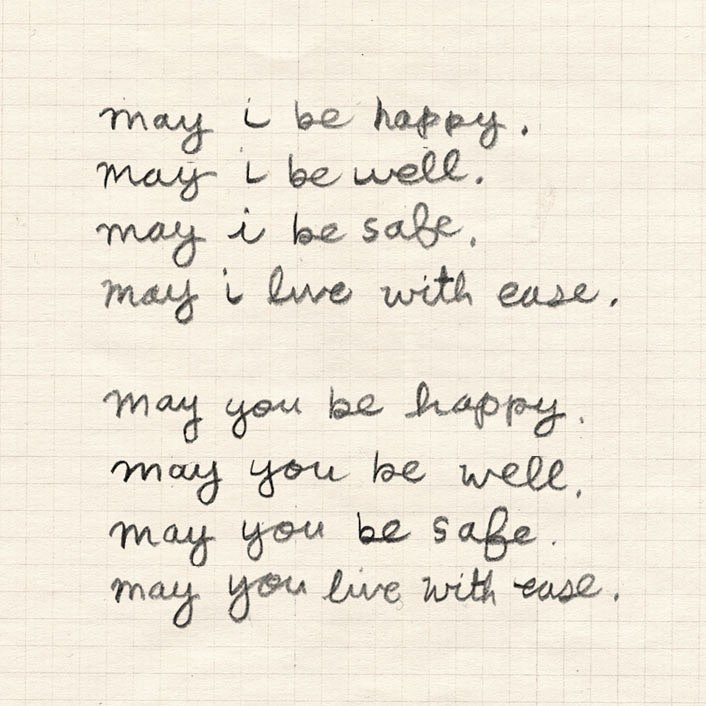 may i be happy.
may i be well.
may i be safe.
may i live with ease.
may you be happy.
may you be well.
may you be safe.
may you live with ease.